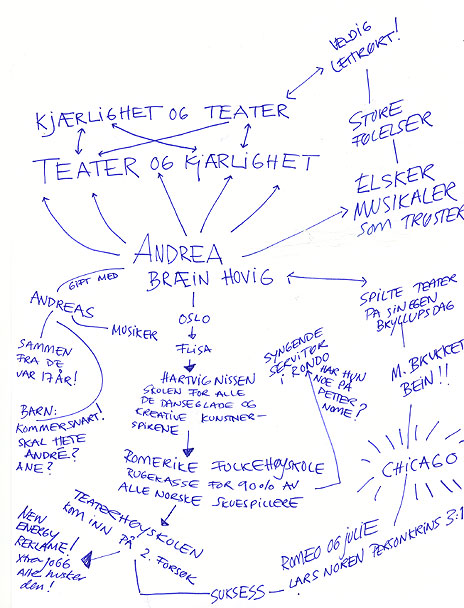 VELDIG
LETTRØRT!
KJÆRLIGHET OG TEATER
STORE
FØLELSER
TEATER OG KJÆRLIGHET
ELSKER
MUSIKALER
SOM TRØSTER
ANDREA
BRÆIN HOVIG
GIFT MED
ANDREAS
MUSIKER
SAMMEN
FRA DE
VAR 17 ÅR!
BARN:
KOMMER SNART!
SKAL HETE
ANDRÉ?
ANE?
OSLO
FLISA
HARTVIG NISSEN
SKOLEN FOR ALLE
DE DANSEGLADE OG
CREATIVE KUNSTNER-
SPIRENE
SYNGENDE
SERVITØR
I RONDO
HAR HUN
NOE PÅ
PETTER
NOME?
SPILTE TEATER
PÅ SIN EGEN
BRYLLUPSDAG
M. BRUKKET
BEIN!!
CHICAGO
ROMERIKE FOLKEHØYSKOLE
RUGEKASSE FOR 90% AV
ALLE NORSKE SKUESPILLERE
TEATERHØYSKOLEN
KOM INN PÅ
2. FORSØK
NEW
ENERGY
REKLAME!
Xtra Jogg
Alle husker
den!
SUKSESS
ROMEO OG JULIE
LARS NORÉN PERSONKRINS 3:1